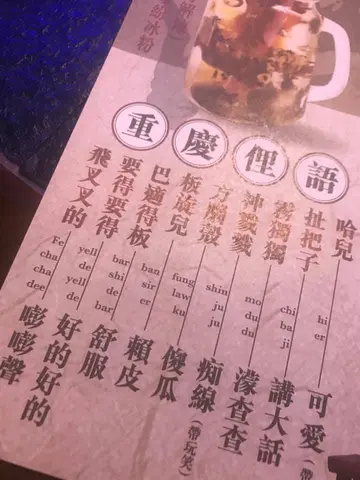 解渴
的冰粉
重慶俚語
哈兒 hi er 可愛
扯把子 chi ba ji 講大話
霧獨獨 mo du du 濛查查
沖 shin ju ju 痴線(帶玩笑)
方腦殼 fung law ku 傻瓜
板旋兒 ban sir er 賴皮
巴適得板 bar shi de bar 舒服
要得要得 yell de yell de 好的好的
飛叉叉的 Fe cha cha dee 嘭嘭聲